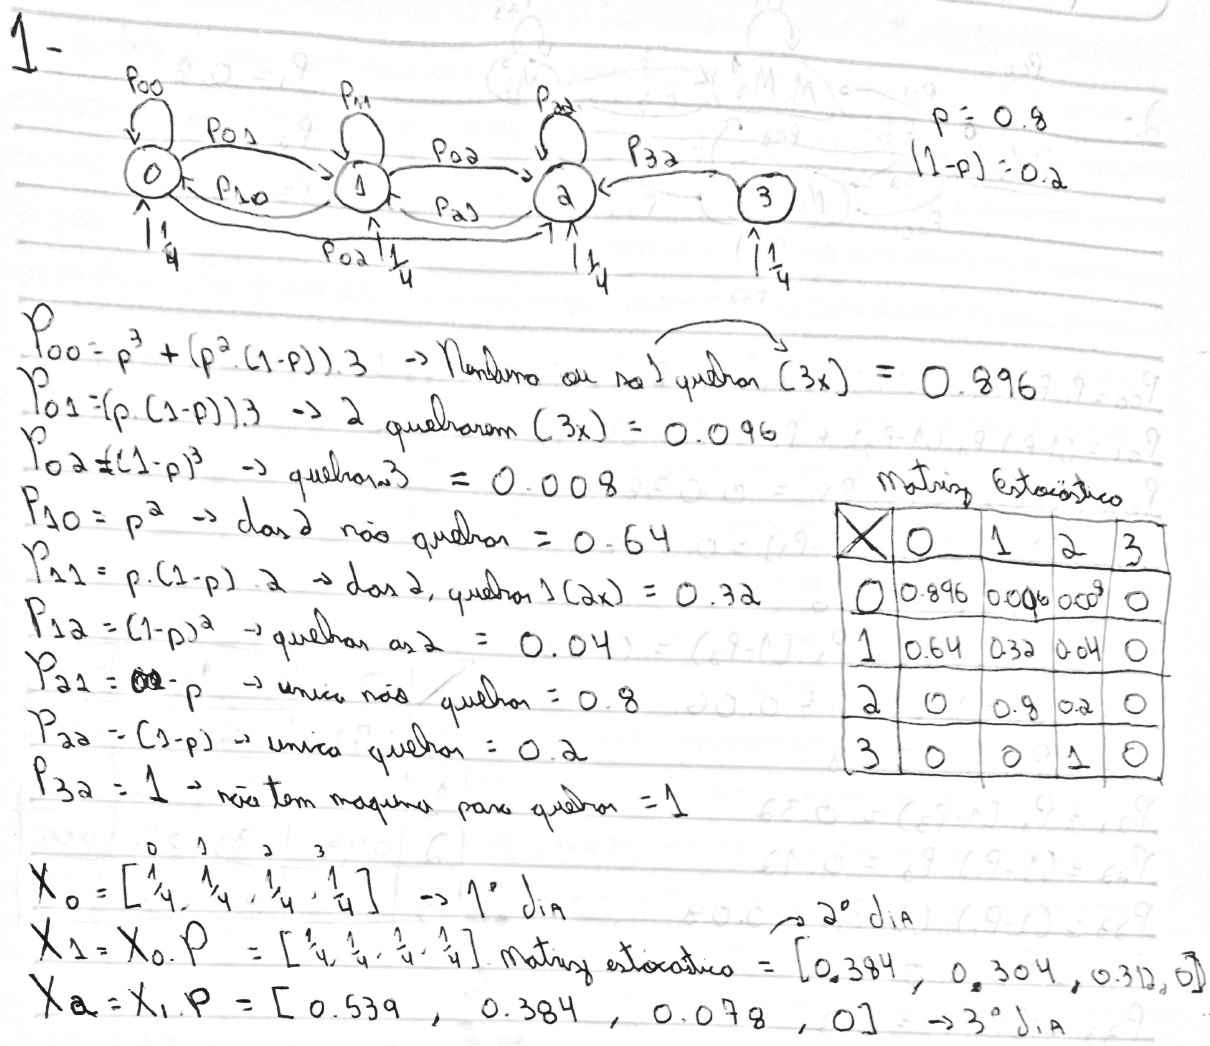 1-
P00 P11 P22
P01 P02 P32
0 1 2 3
P10 P21
P02
1/4 1/4 1/4 1/4
p = 0.8
(1-p) = 0.2
P00 = p³ + (p².(1-p)).3 -> Nenhuma ou só 1 quebrar (3x) = 0.896
P01 = (p.(1-p)).3 -> 2 quebrarem (3x) = 0.096
P02 = (1-p)³ -> quebrar 3 = 0.008
P10 = p² -> das 2 não quebrar = 0.64
P11 = p.(1-p).2 -> das 2, quebrar 1 (2x) = 0.32
P12 = (1-p)² -> quebrar as 2 = 0.04
P21 = p -> unica não quebrar = 0.8
P22 = (1-p) -> unica quebrar = 0.2
P32 = 1 -> não tem maquina para quebrar = 1
Matriz Estocástica
X 0 1 2 3
0 0.896 0.096 0.008 0
1 0.64 0.32 0.04 0
2 0 0.8 0.2 0
3 0 0 1 0
0 1 2 3
X0 = [1/4, 1/4, 1/4, 1/4] -> 1º diA
-> 2º diA
X1 = X0.P = [1/4, 1/4, 1/4, 1/4]. Matriz estocástica = [0.384, 0.304, 0.312, 0]
X2 = X1.P = [0.539, 0.384, 0.078, 0] -> 3º diA